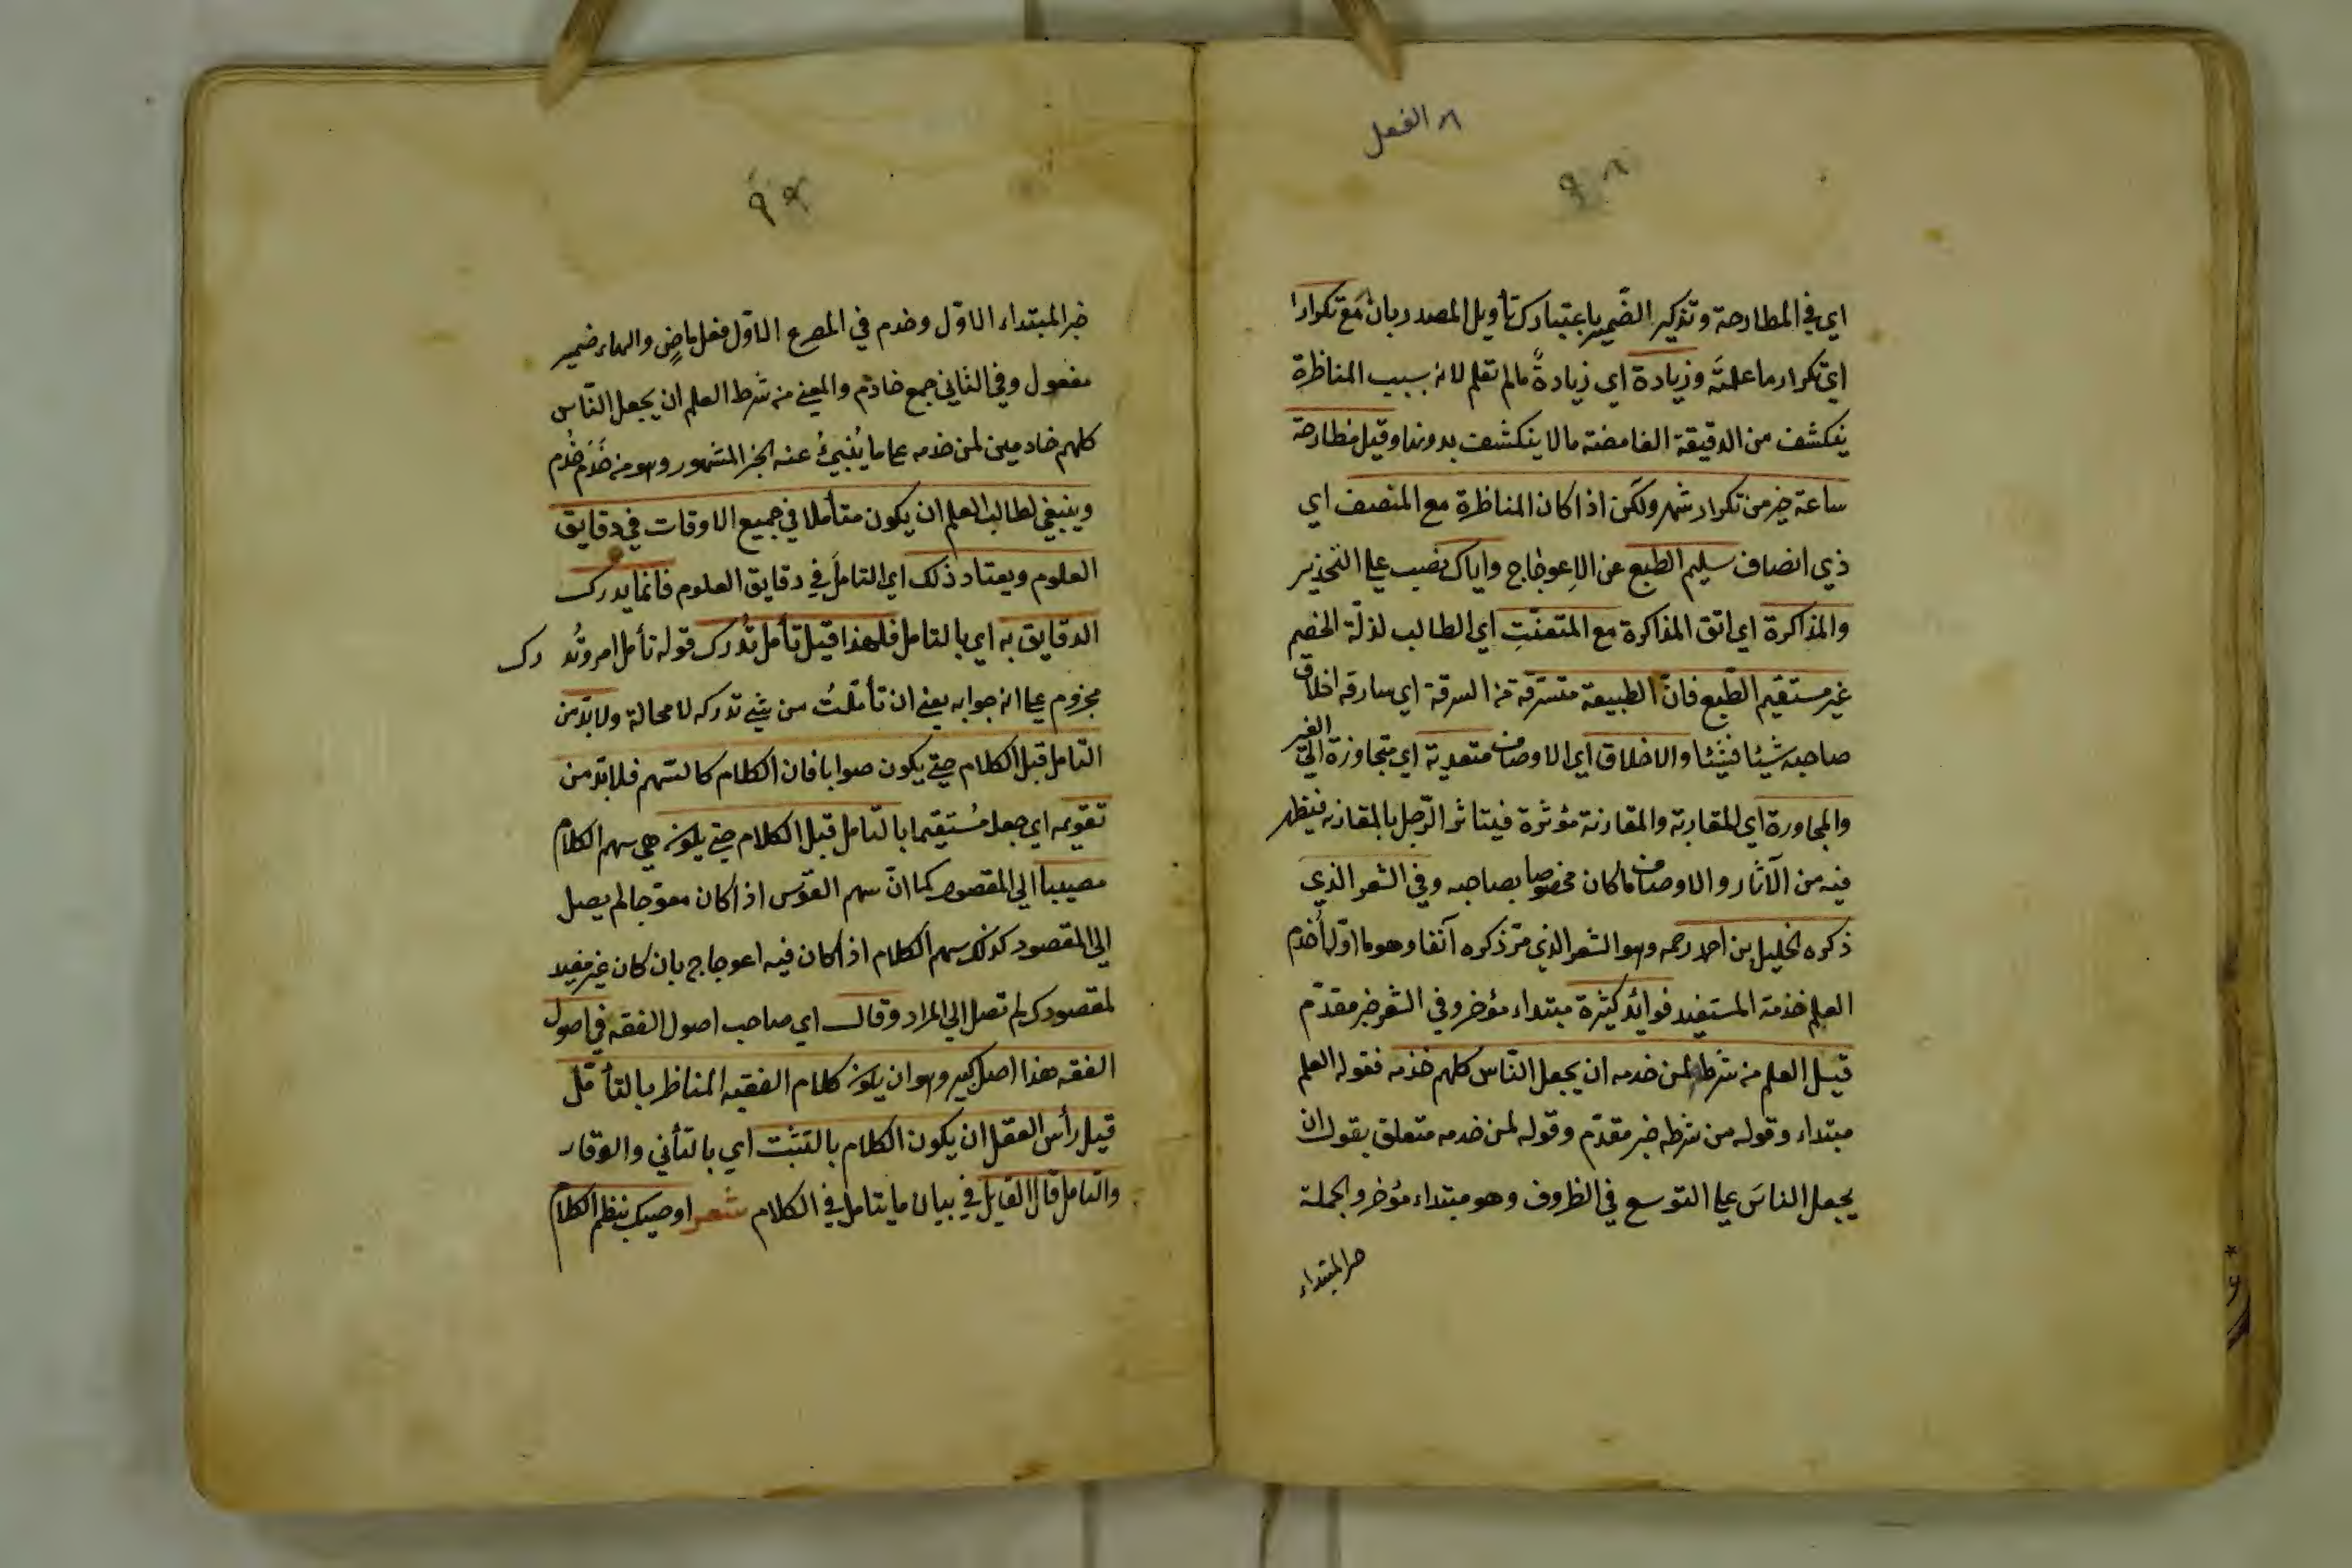 ٨ الفعل
٩٨
اي في المطارحة وتذكير الضّمير باعتبارك تأويل المصدر بان مع تكرارا
اي تكرار ما علمته وزيادة اي زيادةً مالم تعلم لانه بسبب المناظرة
ينكشف من الدقيقة الغامضة مالا ينكشف بدونها وقيل مطارحة
ساعة خير من تكرار شهر ولكن اذا كان المناظرة مع المنصف اي
ذي انصاف سليم الطبع عن الاعوجاج واياك نصب على التحذير
والمذاكرة اي اتق المذاكرة مع المتعنّتِ اي الطالب لذلّة الخصم
غير مستقيم الطّبع فانّ الطبيعة متسرّقة من السرقة اي سارقه اخلاق
صاحبه شيئا فشيئا والاخلاق اي الاوصاف متعدية اي متجاوزة الى الغير
والمجاورة اي المقاربة والمقارنة مؤثرة فيتاثر الرّجل بالمقارنه فيظهر
فيه من الآثار والاوصاف ماكان مخصوصا بصاحبه وفي الشعر الذي
ذكره الخليل بن احمد رحمه وهو الشعر الذي مرّ ذكره آنفا وهو ما اوّله أخدم
العلم خدمة المستفيد فوائد كثيرة مبتداء مؤخر وفي الشعر خبر مقدّم
قيل العلم من شرطه لمن خدمه ان يجعل النّاس كلهم خدمه فقوله العلم
مبتداء وقوله من شرطه خبر مقدّم وقوله لمن خدمه متعلق بقوله ان
يجعل الناسَ على التوسع في الظروف وهو مبتداء مؤخر والجملة
خبر المبتداء
٩٩
خبر المبتداء الاوّل وخدم في المصرع الاوّل فعل ماضٍ والهاء ضمير
مفعول وفي الثاني جمع خادم والمعنى من شرط العلم ان يجعل النّاس
كلهم خادمين لمن خدمه على ما يُنبئُ عنه الخبر المشهور وهو من خَدَم خُدِم
وينبغي لطالب العلم ان يكون متأملا في جميع الاوقات في دقايق
العلوم ويعتاد ذلك اي التامل في دقايق العلوم فانما يدرك
الدقايق به اي بالتامل فلهذا قيل تأمل تُدرك قوله تأمل امر وتُد رك
مجزوم على انه جوابه يعني ان تأمّلتُ من شئ تدركه لا محالة ولا بدّ من
التامل قبل الكلام حتى يكون صوابا فان الكلام كالسّهم فلا بدّ من
تقويمه اي جعله مُستقيما بالتّامل قبل الكلام حتى يكون هي سهم الكلام
مصيبا الى المقصود كما انّ سهم القوّس اذا كان معوّجا لم يصل
الى المقصود كذلك سهم الكلام اذا كان فيه اعوجاج بان كان غير مفيد
لمقصودك لم تصل الى المراد وقال اي صاحب اصول الفقه في اصول
الفقه هذا اصل كبير وهو ان يكون كلام الفقيه المناظر بالتأمّل
قيل رأس العقل ان يكون الكلام بالتثبت اي بالتأني والوقار
والتامل قال القايل في بيان ما يتامل في الكلام شعر اوصيك بنظم الكلام